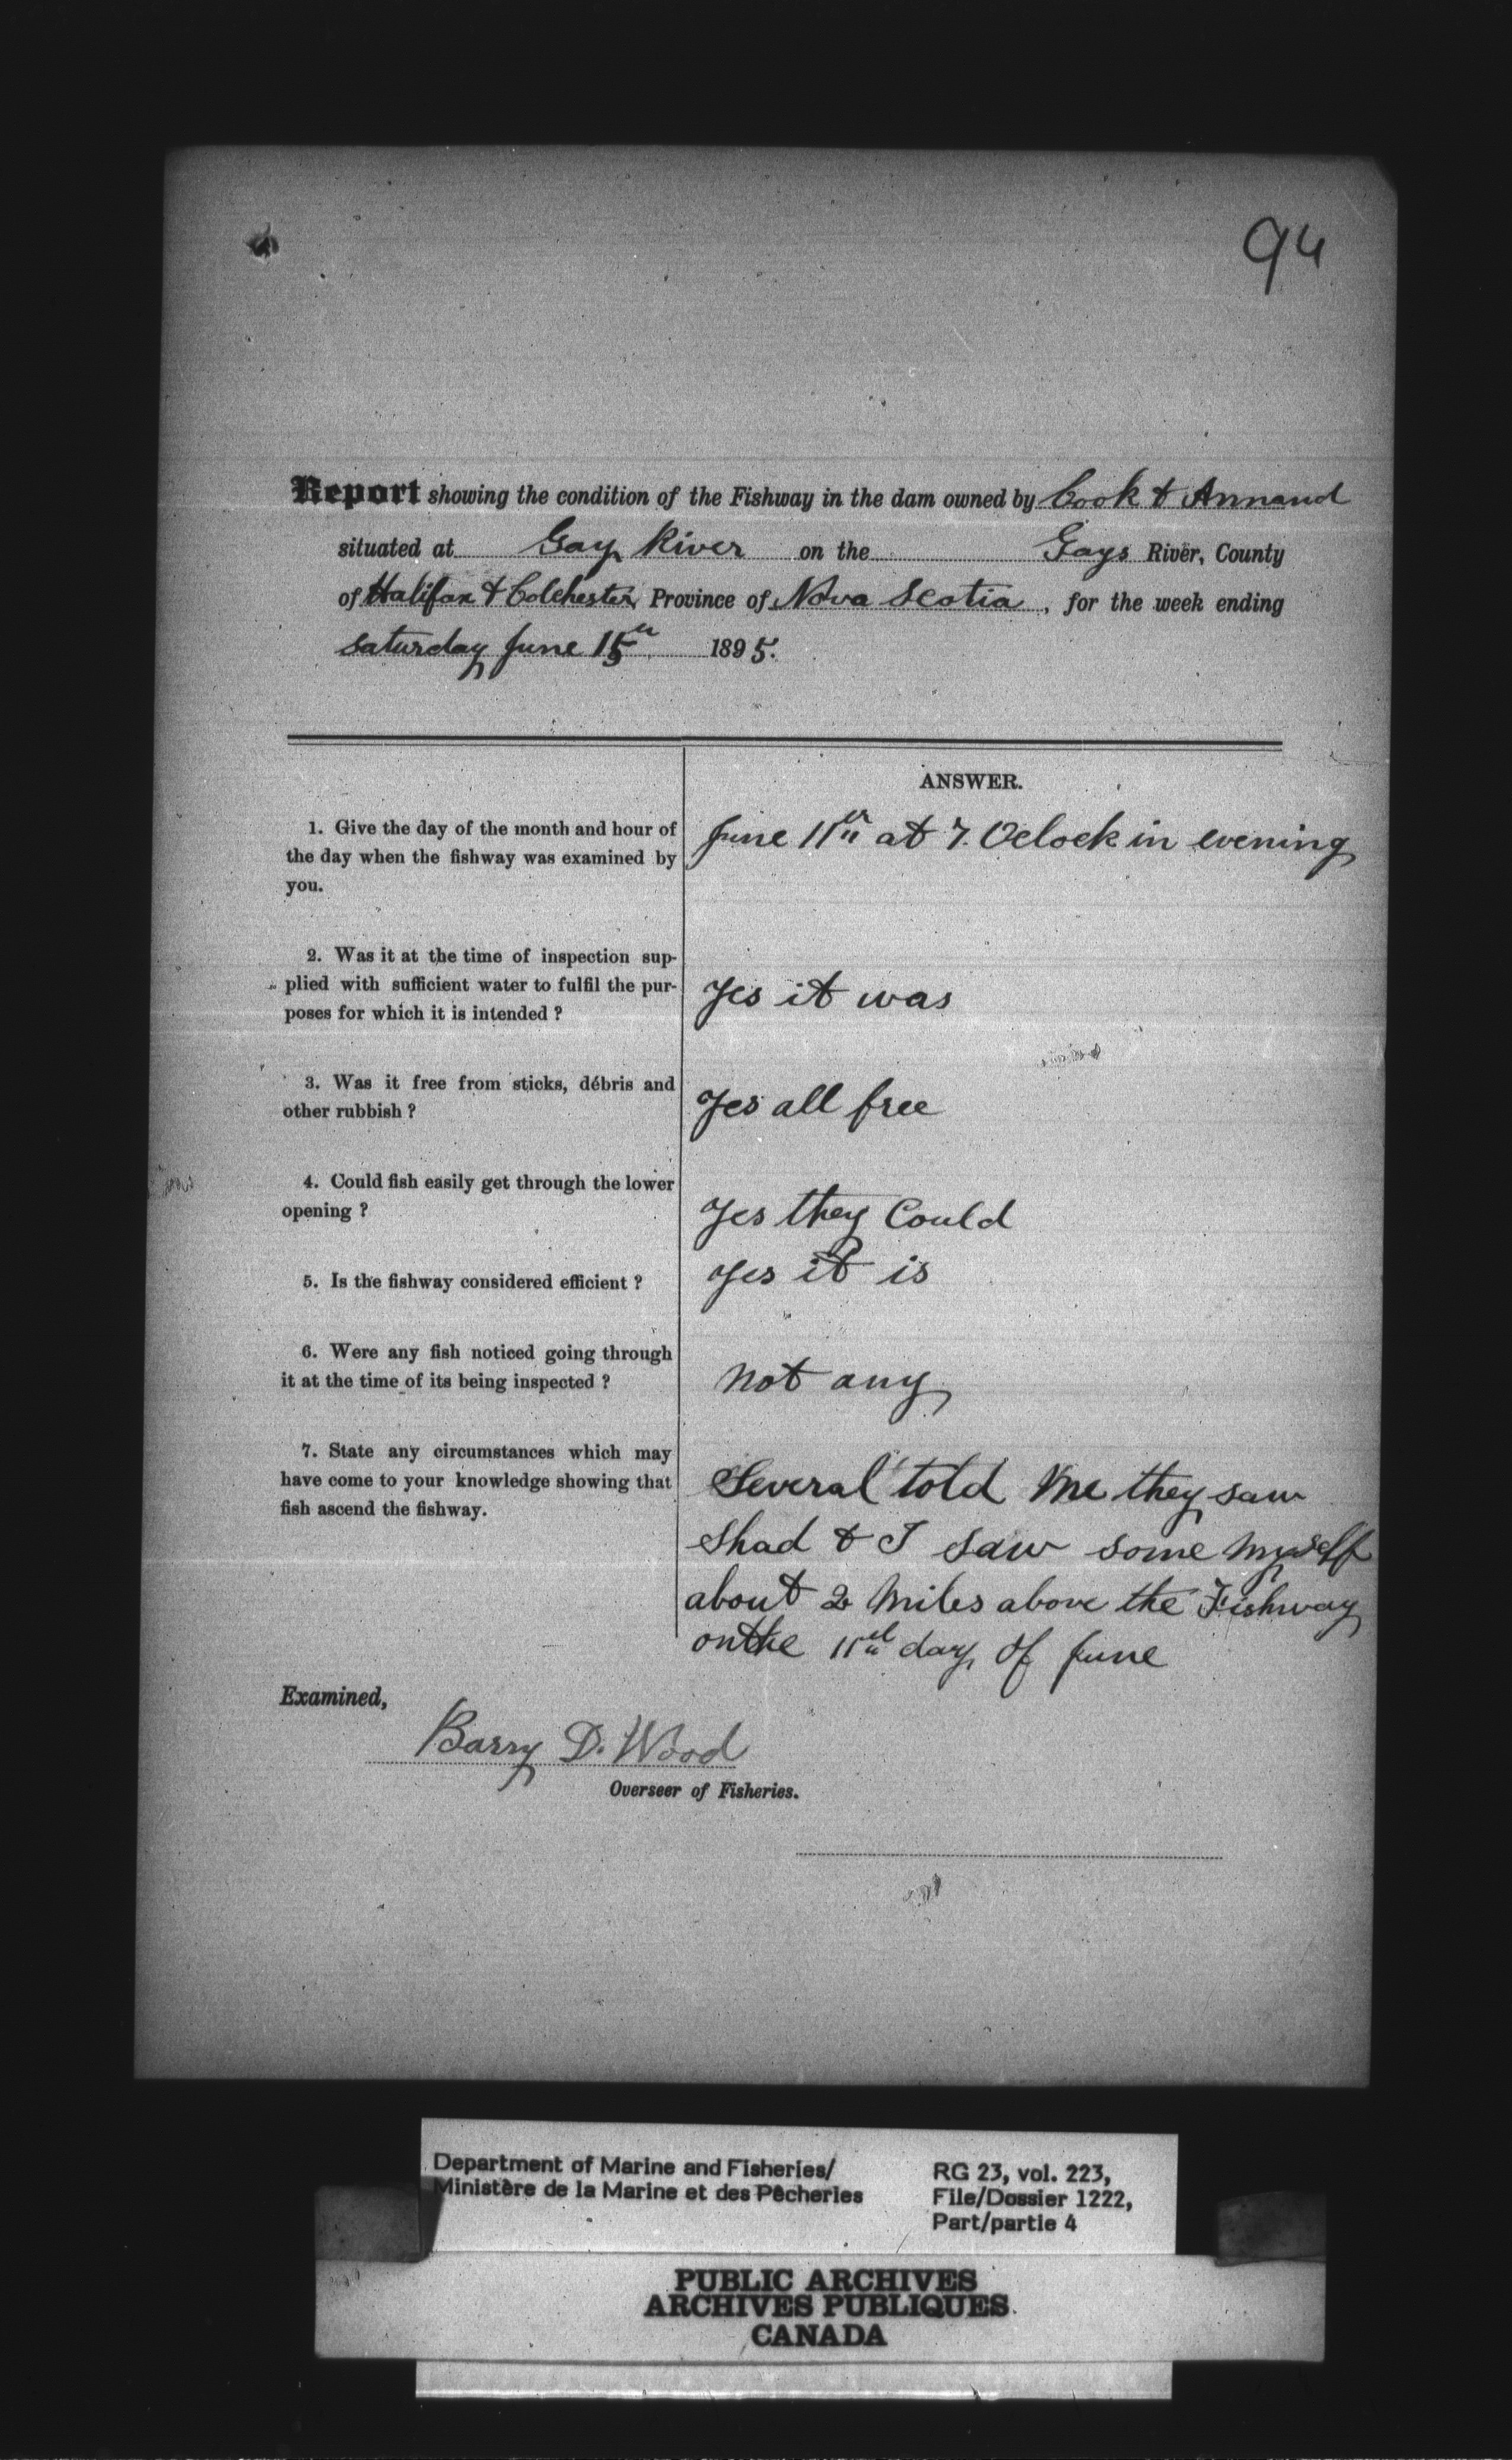 94
Report showing the condition of the Fishway in the dam owned by Cook & Annand
situated at Gay River on the Gays River, County
of Halifax & Colchester, Province of Nova Scotia, for the week ending
Saturday June 15th 1895.
ANSWER.
1. Give the day of the month and hour of
the day when the fishway was examined by
you.
June 11th at 7. Oclock in evening
2. Was it at the time of inspection sup-
plied with sufficient water to fulfil the pur-
poses for which it is intended ?
Yes it was
3. Was it free from sticks, débris and
other rubbish ?
Yes all free
4. Could fish easily get through the lower
opening ?
Yes they Could
5. Is the fishway considered efficient ?
Yes it is
6. Were any fish noticed going through
it at the time of its being inspected ?
Not any
7. State any circumstances which may
have come to your knowledge showing that
fish ascend the fishway.
Several told Me they saw
Shad & I saw some Myself
about 2 Miles above the Fishway
on the 11th day of June
Examined,
Barry D. Wood
Overseer of Fisheries.
Department of Marine and Fisheries/
Ministère de la Marine et des Pêcheries
RG 23, vol. 223,
File/Dossier 1222,
Part/partie 4
PUBLIC ARCHIVES
ARCHIVES PUBLIQUES
CANADA